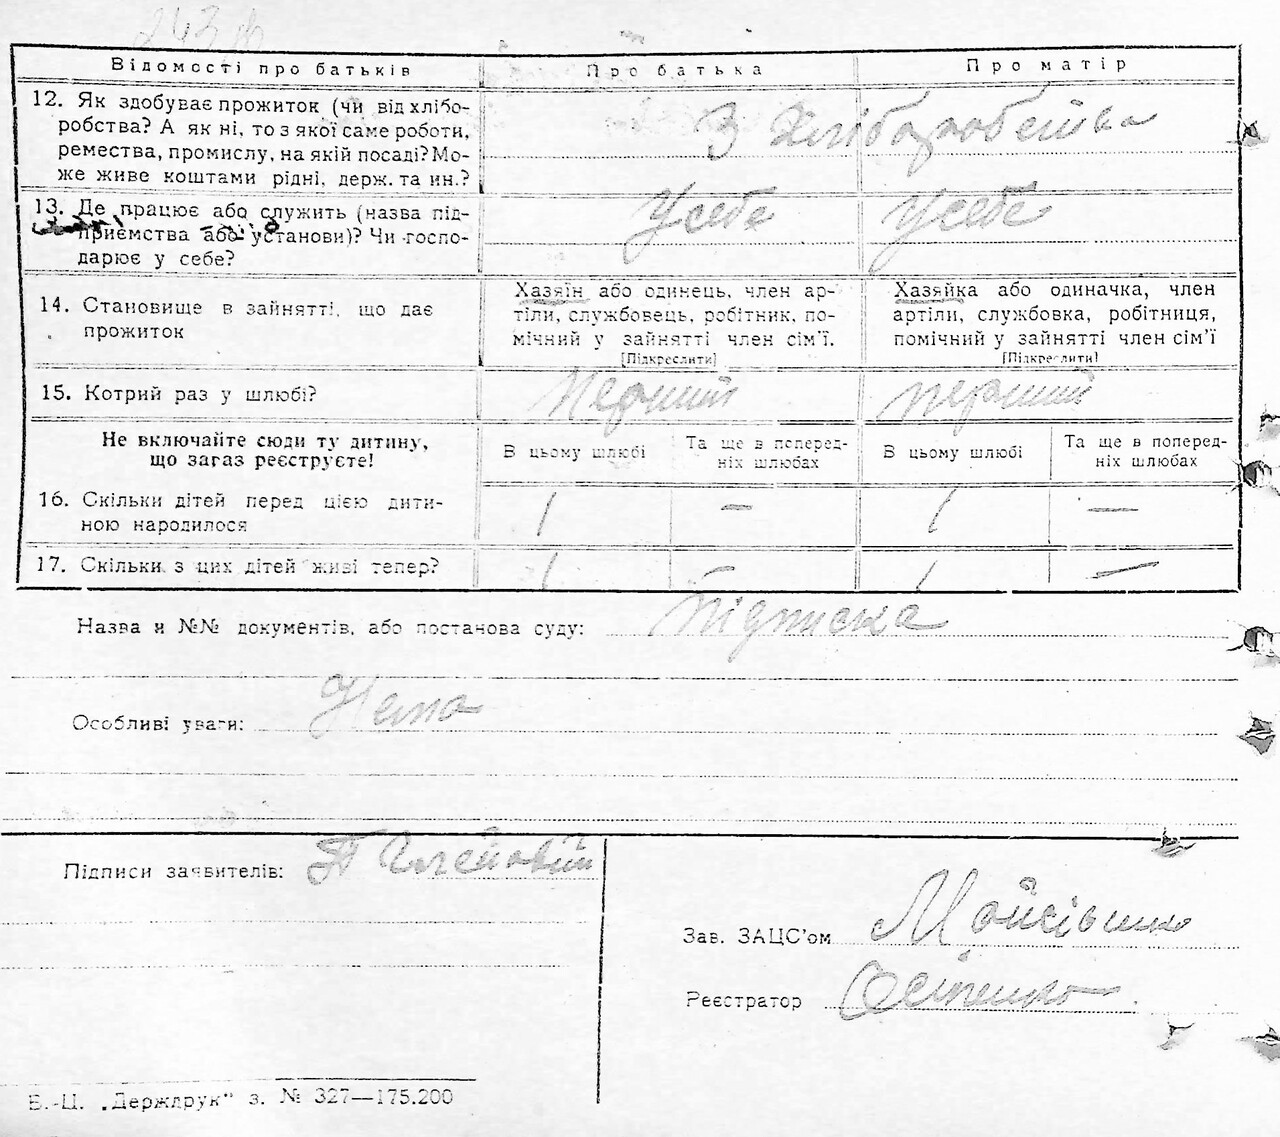 243
Відомості про батьків Про батька Про матір
12. Як здобуває прожиток (чи від хлібо-
робства? А як ні, то з якої саме роботи,
ремества, промислу, на якій посаді? Мо-
же живе коштами рідні, держ. та ин.?
З хліборобства
13. Де працює або служить (назва під-
приємства або установи)? Чи госпо-
дарює у себе?
У себе У себе
14. Становище в зайнятті, що дає
прожиток
Хазяїн або одинець, член ар-
тіли, службовець, робітник, по-
мічний у зайнятті член сім'ї.
[Підкреслити]
Хазяйка або одиначка, член
артіли, службовка, робітниця,
помічний у зайнятті член сім'ї
[Підкреслити]
15. Котрий раз у шлюбі? Перший перший
Не включайте сюди ту дитину,
що загаз реєструєте!
В цьому шлюбі
Та ще в поперед-
ніх шлюбах
В цьому шлюбі
Та ще в поперед-
ніх шлюбах
16. Скільки дітей перед цією дити-
ною народилося
1 — 1 —
17. Скільки з цих дітей живі тепер? 1 — 1 —
Назва и №№ документів, або постанова суду: Підписка
Особливі уваги: Нема
Підписи заявителів:
Зав. ЗАЦС'ом Мойсієнко
Реєстратор Осіпенко
В.-Ц. „Держдрук" з. № 327—175.200